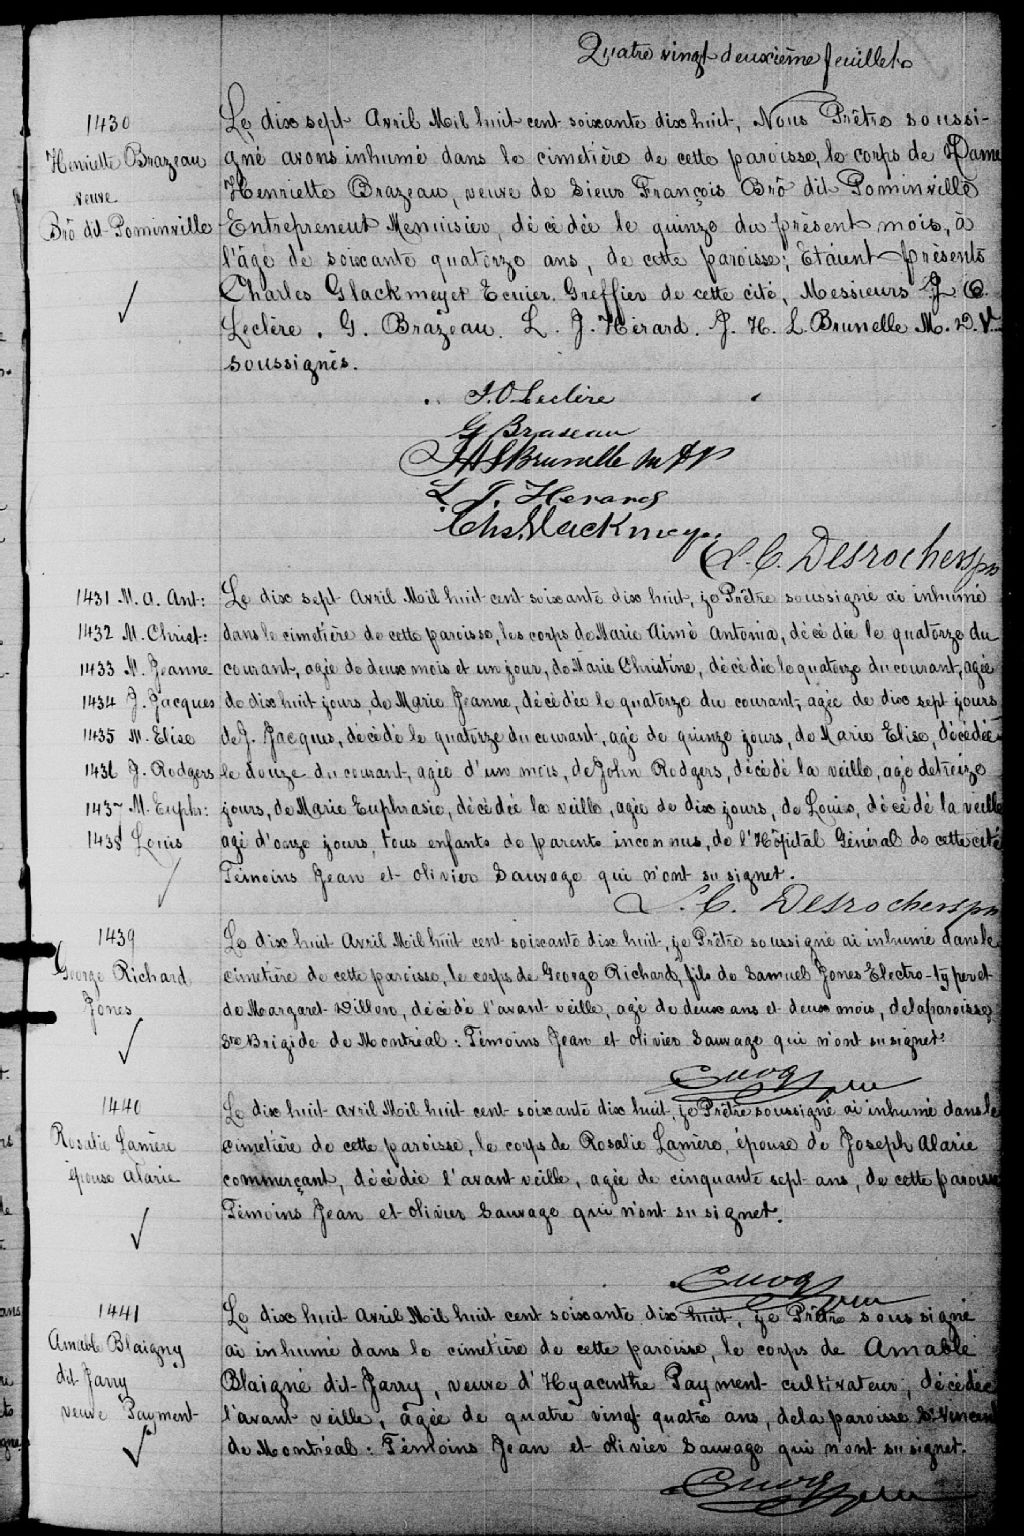 Quatre vingt deuxième feuillet
1430
Henriette Brazeau
veuve
Brô dit Pominville
Le dix sept Avril Mil huit cent soixante dix huit, Nous Prêtre soussi-
gné avons inhumé dans le cimetière de cette paroisse, le corps de Dame
Henriette Brazeau, veuve de Sieur François Brô dit Pominville
Entrepreneur Menuisier, décédée le quinze du présent mois, à
l'âge de soixante quatorze ans, de cette paroisse; Etaient présents
Charles Glackmeyer Ecuier Greffier de cette cité, Messieurs J. O.
Leclère. G. Brazeau. L. J. Hérard. J. H. L. Brunelle M. D. V.
soussignés.
J. O Leclère
G Braseau
J H L Brunelle M D V
L. J. Herard
Chs. Glackmeyer
L. C. Desrochers ptre
1431 M. A. Ant:
1432 M. Christ:
1433 M. Jeanne
1434 J. Jacques
1435 M. Elise
1436 J. Rodgers
1437 M. Euphr:
1438 Louis
Le dix sept Avril Mil huit cent soixante dix huit, je Prêtre soussigné ai inhumé
dans le cimetière de cette paroisse, les corps de Marie Aimé Antonia, décédée le quatorze du
courant, agée de deux mois et un jour, de Marie Christine, décédée le quatorze du courant, agée
de dix huit jours, de Marie Jeanne, décédée le quatorze du courant, agée de dix sept jours
de J. Jacques, décédé le quatorze du courant, agé de quinze jours, de Marie Elise, décédée
le douze du courant, agée d'un mois, de John Rodgers, décédé la veille, agé de treize
jours, de Marie Euphrasie, décédée la veille, agée de dix jours, de Louis, décédé la veille
agé d'onze jours, tous enfants de parents inconnus, de l'Hôpital Général de cette cité
Témoins Jean et Olivier Sauvage qui n'ont su signer.
L. C. Desrochers ptre
1439
George Richard
Jones
Le dix huit Avril Mil huit cent soixante dix huit, je Prêtre soussigné ai inhumé dans le
cimetière de cette paroisse, le corps de George Richard, fils de Samuel Jones Electro-typer et
de Margaret Dillon, décédé l'avant veille, agé de deux ans et deux mois, de la paroisse
Ste Brigide de Montréal: Témoins Jean et Olivier Sauvage qui n'ont su signer.
Cuoq ptre
1440
Rosalie Larière
épouse Alarie
Le dix huit Avril Mil huit cent soixante dix huit, je Prêtre soussigné ai inhumé dans le
cimetière de cette paroisse, le corps de Rosalie Larière, épouse de Joseph Alarie
commerçant, décédée l'avant veille, agée de cinquante sept ans, de cette paroisse
Témoins Jean et Olivier Sauvage qui n'ont su signer.
Cuoq ptre
1441
Amable Blaigny
dit Jarry
veuve Payment
Le dix huit Avril Mil huit cent soixante dix huit, je Prêtre soussigné
ai inhumé dans le cimetière de cette paroisse, le corps de Amable
Blaigné dit Jarry, veuve d'Hyacinthe Payment cultivateur, décédée
l'avant veille, âgée de quatre vingt quatre ans, de la paroisse St Vincent
de Montréal: Témoins Jean et Olivier Sauvage qui n'ont su signer.
Cuoq ptre